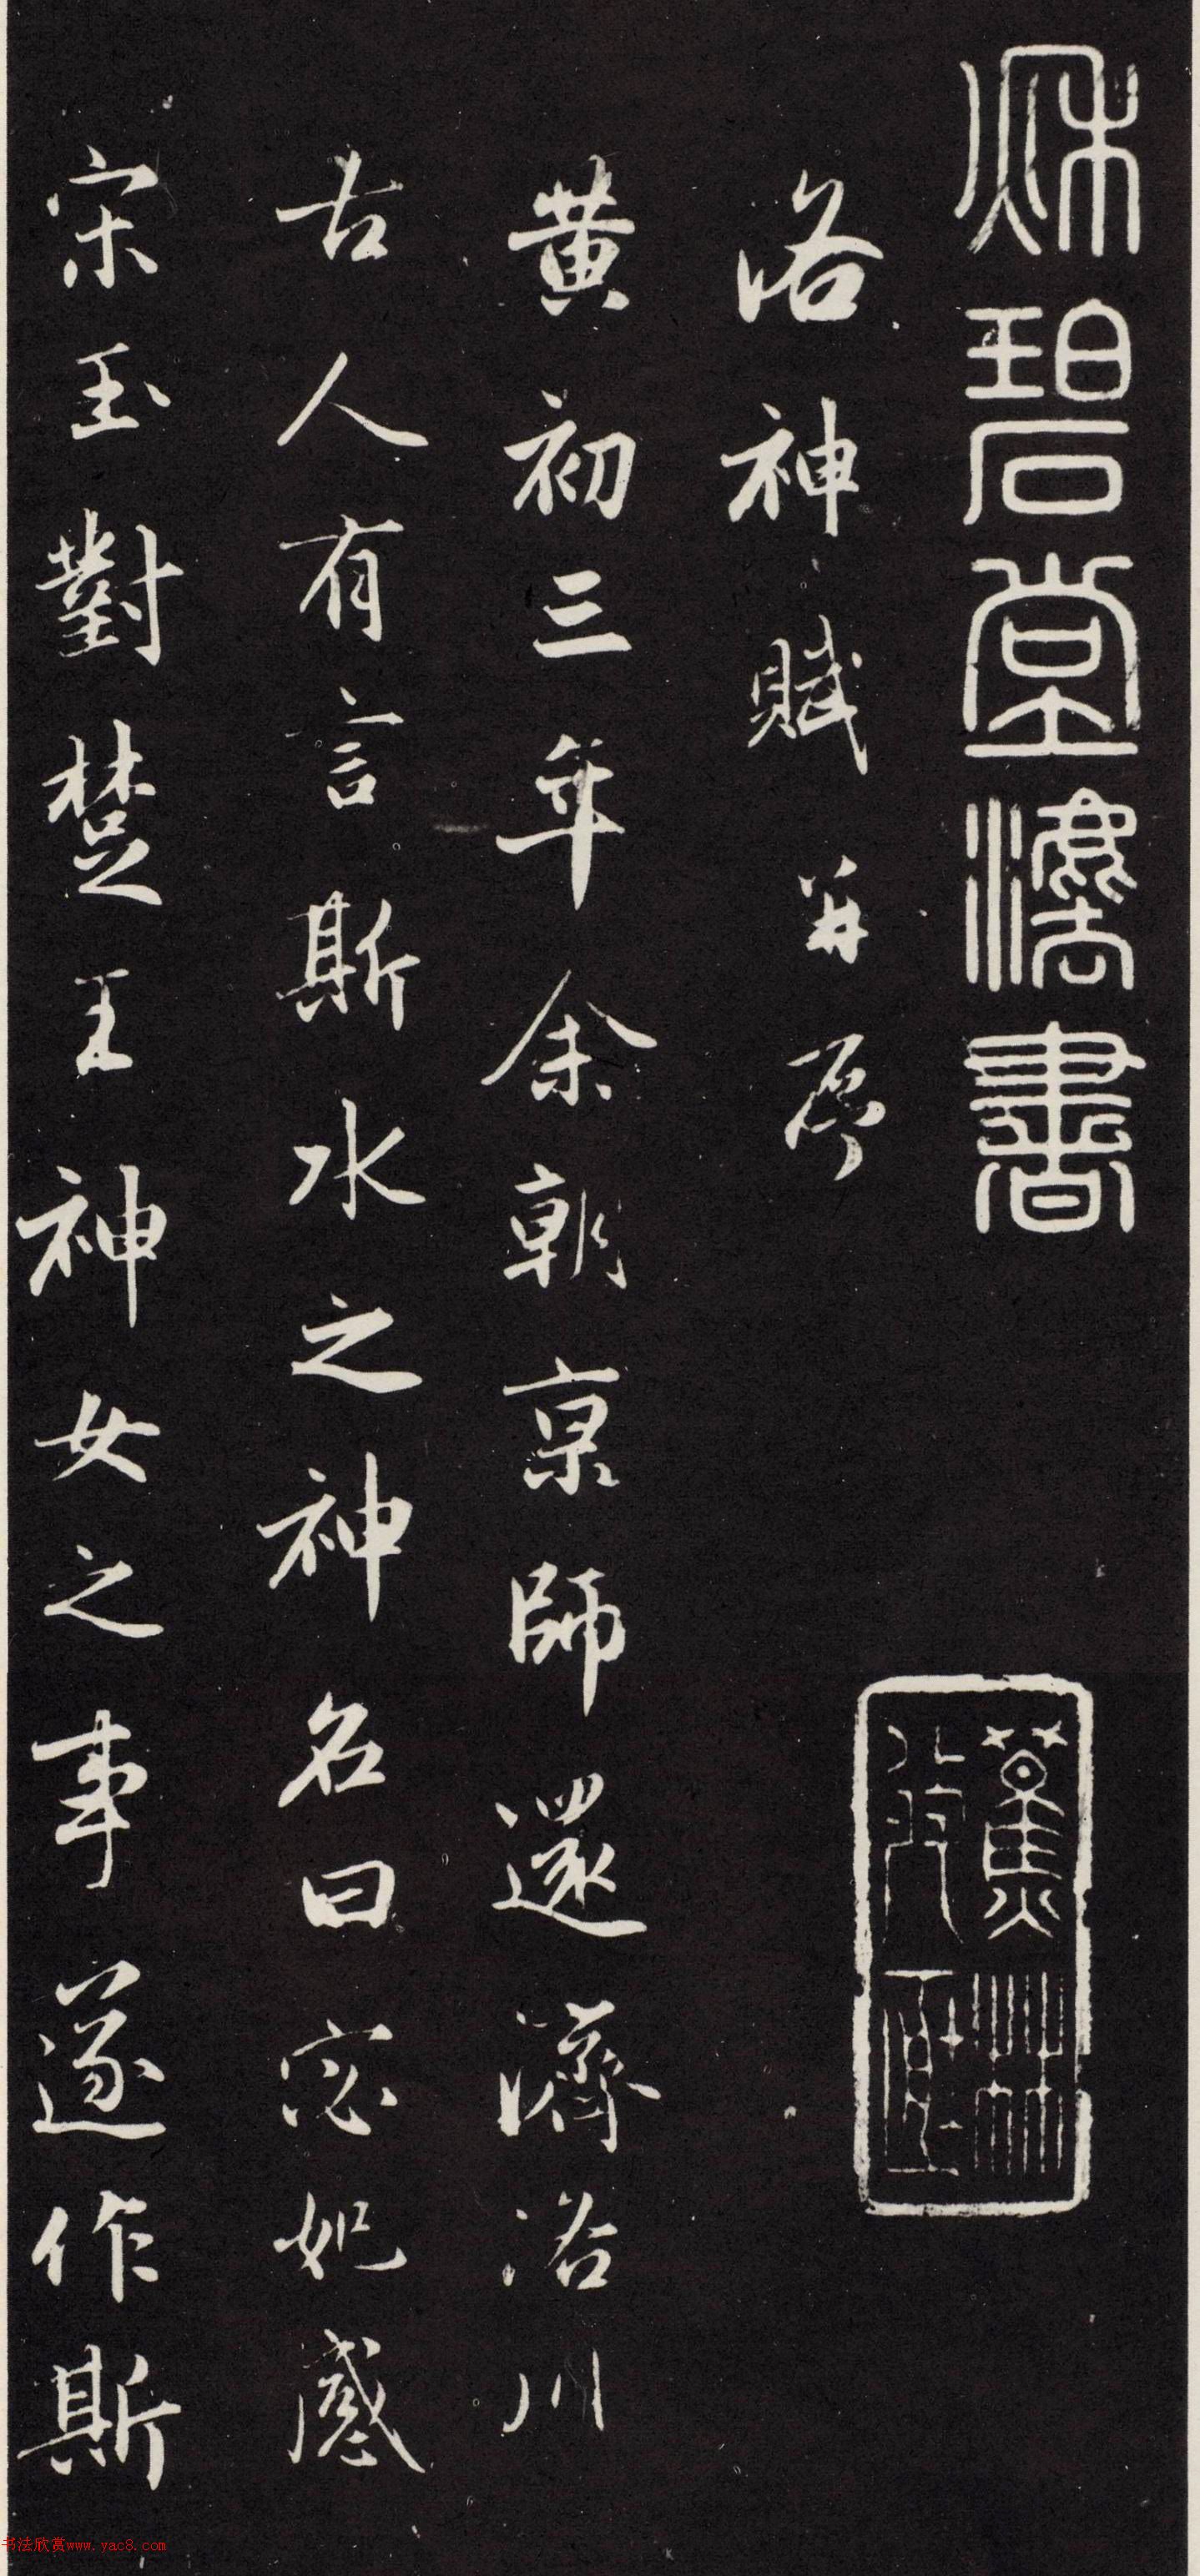 秌碧堂灋書
蕉林
洛神賦并序
黄初三年余朝亰師還濟洛川
古人有言斯水之神名曰宓妃感
宋玉對楚王神女之事遂作斯
书法欣赏www.yac8.com